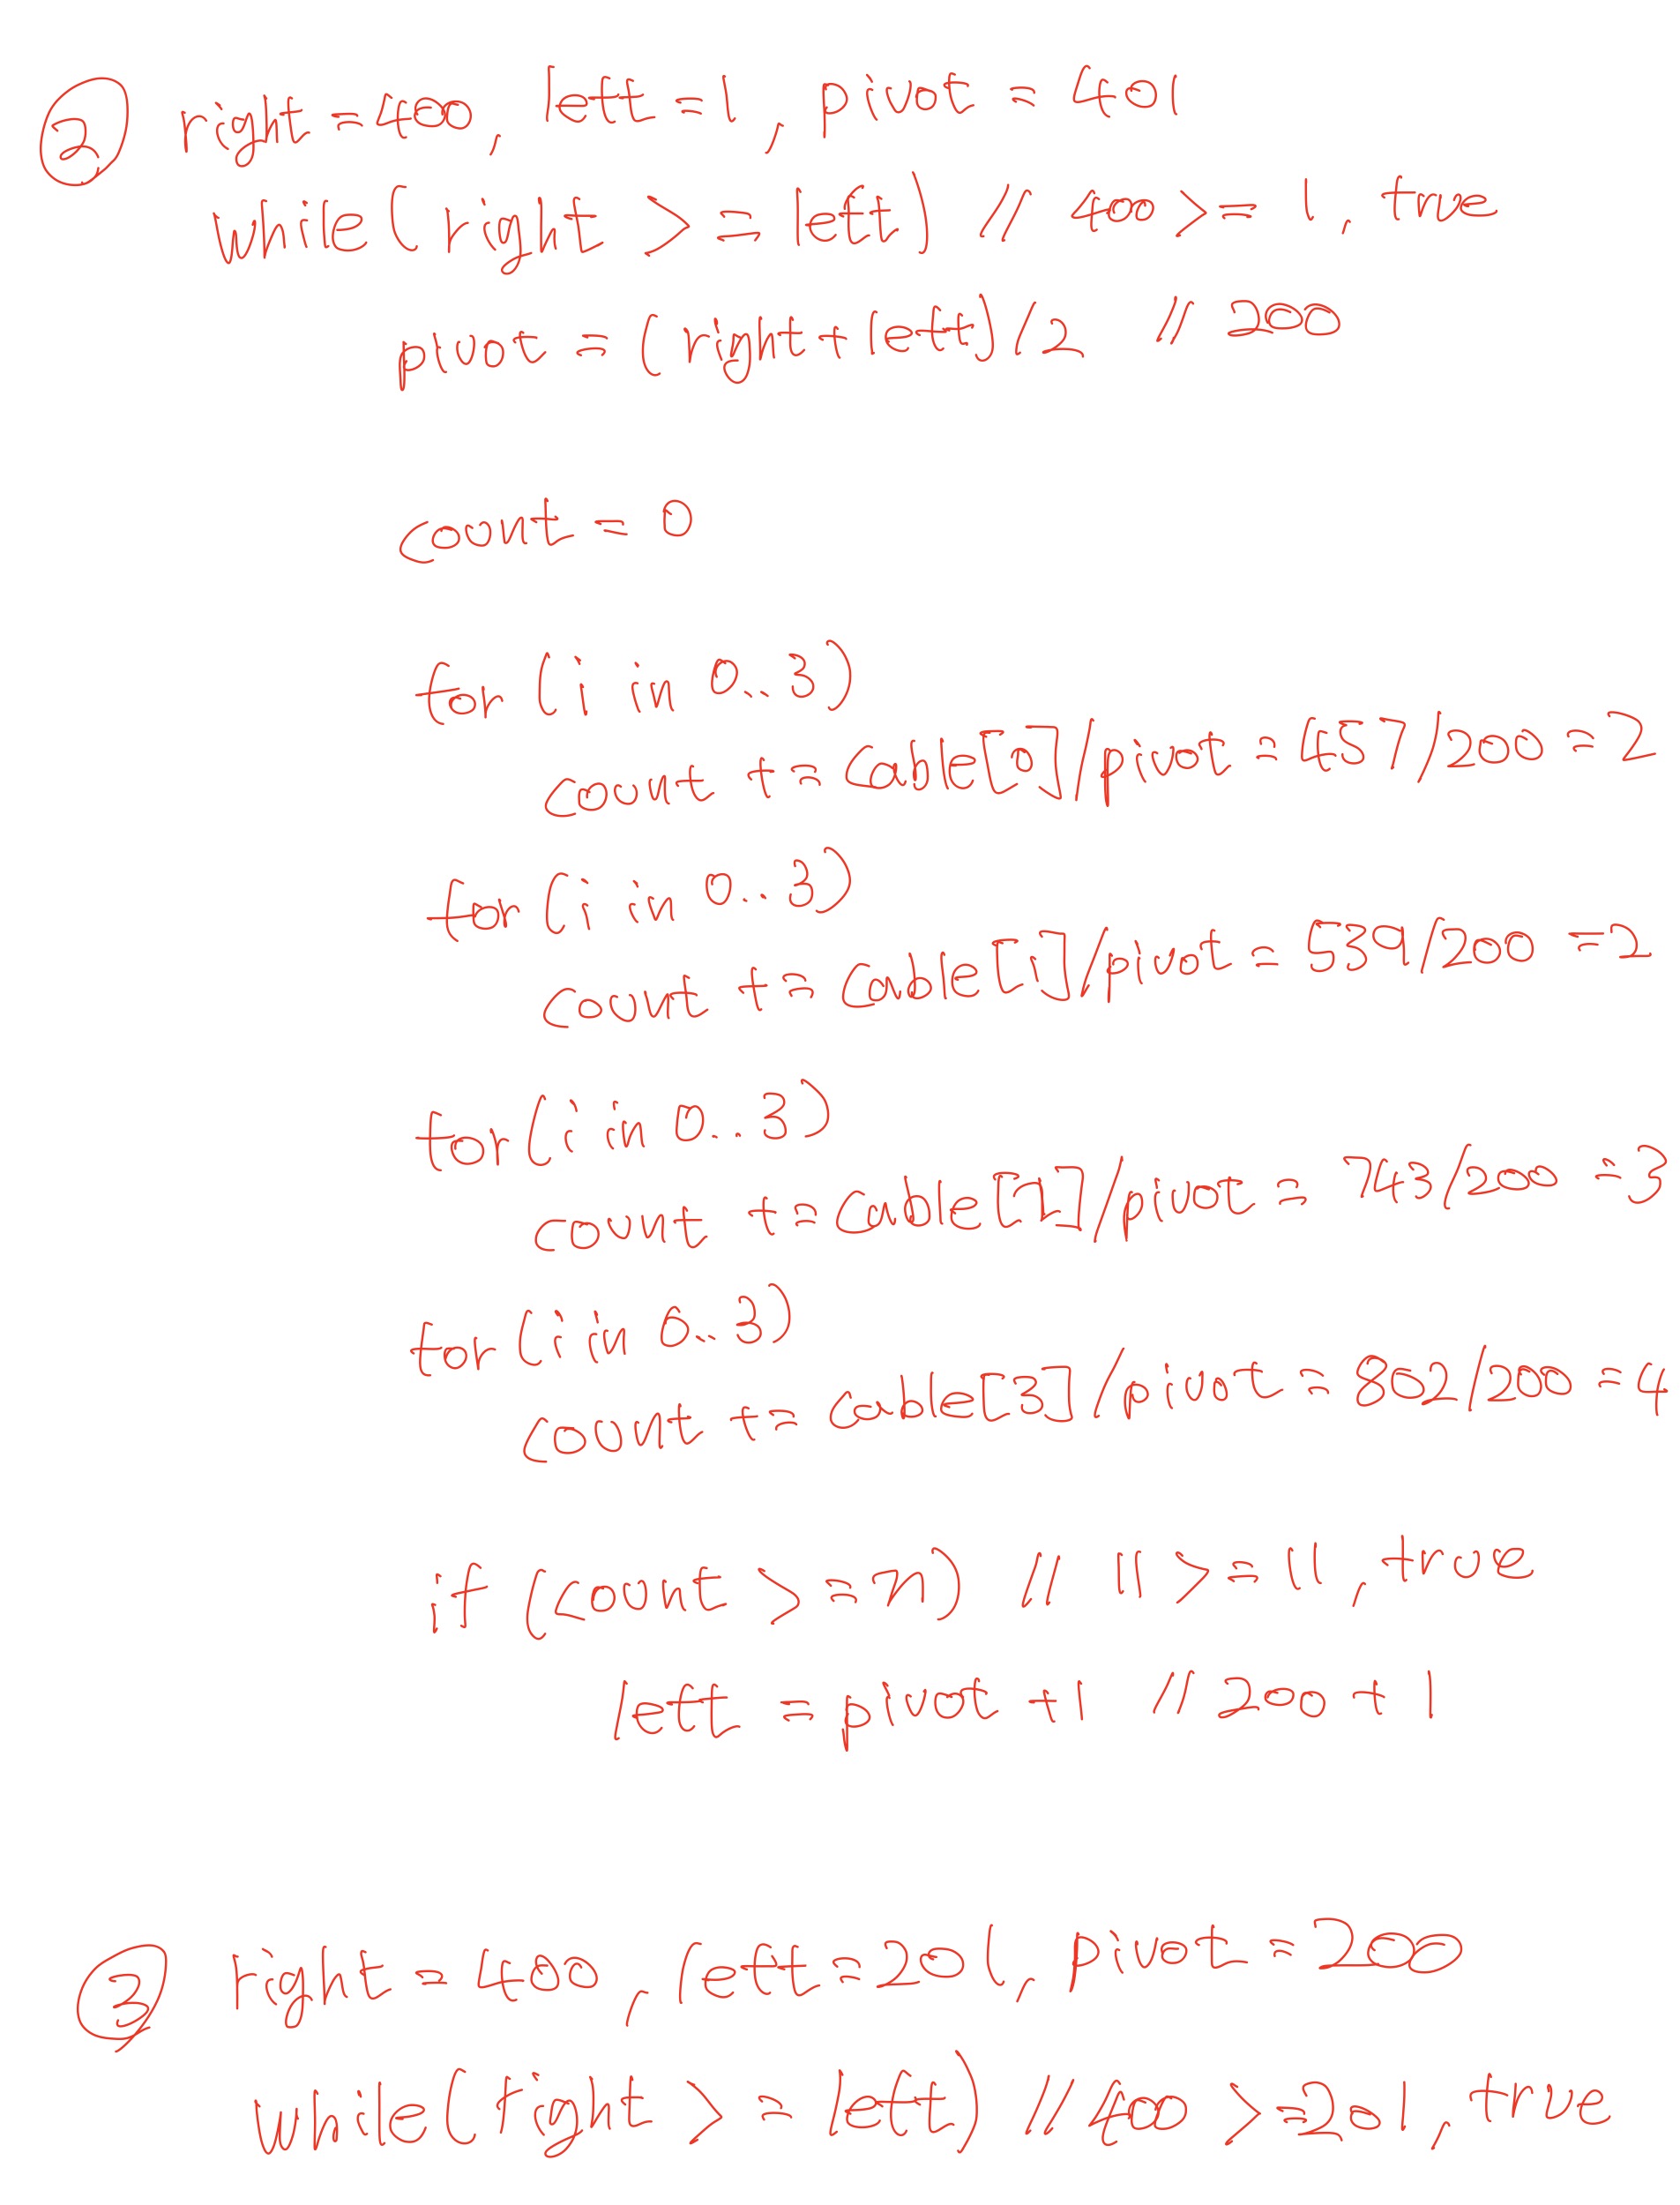 ② right = 400, left = 1, pivot = 401
while( right >= left) // 400 >= 1, true
pivot = (right + left)/2 // 200
count = 0
for (i in 0..3)
count += cable[0]/pivot = 457/200 = 2
for (i in 0..3)
count += cable[1]/pivot = 539/200 = 2
for (i in 0..3)
count += cable[2]/pivot = 743/200 = 3
for (i in 0..3)
count += cable[3]/pivot = 802/200 = 4
if (count >= n) // 11 >= 11, true
left = pivot + 1 // 200 + 1
③ right = 400, left = 201, pivot = 200
while( right >= left) // 400 >= 201, true